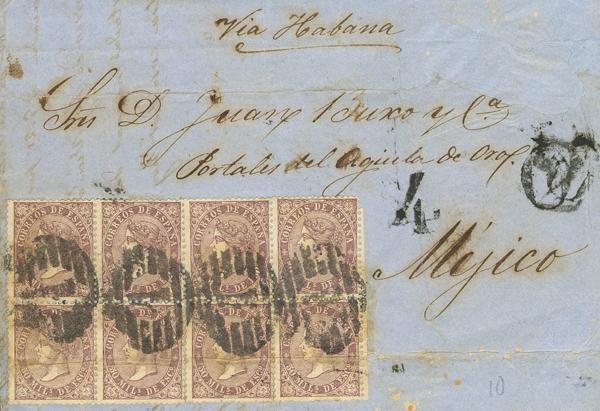 Via Habana
Sres D. Juan Buxo y Cª
Portales del Aguila de Oro.
4
Méjico
CORREOS DE ESPAÑA CORREOS DE ESPAÑA CORREOS DE ESPAÑA CORREOS DE ESPAÑA
50 MILS DE ESC. 50 MILS DE ESC. 50 MILS DE ESC. 50 MILS DE ESC.
10